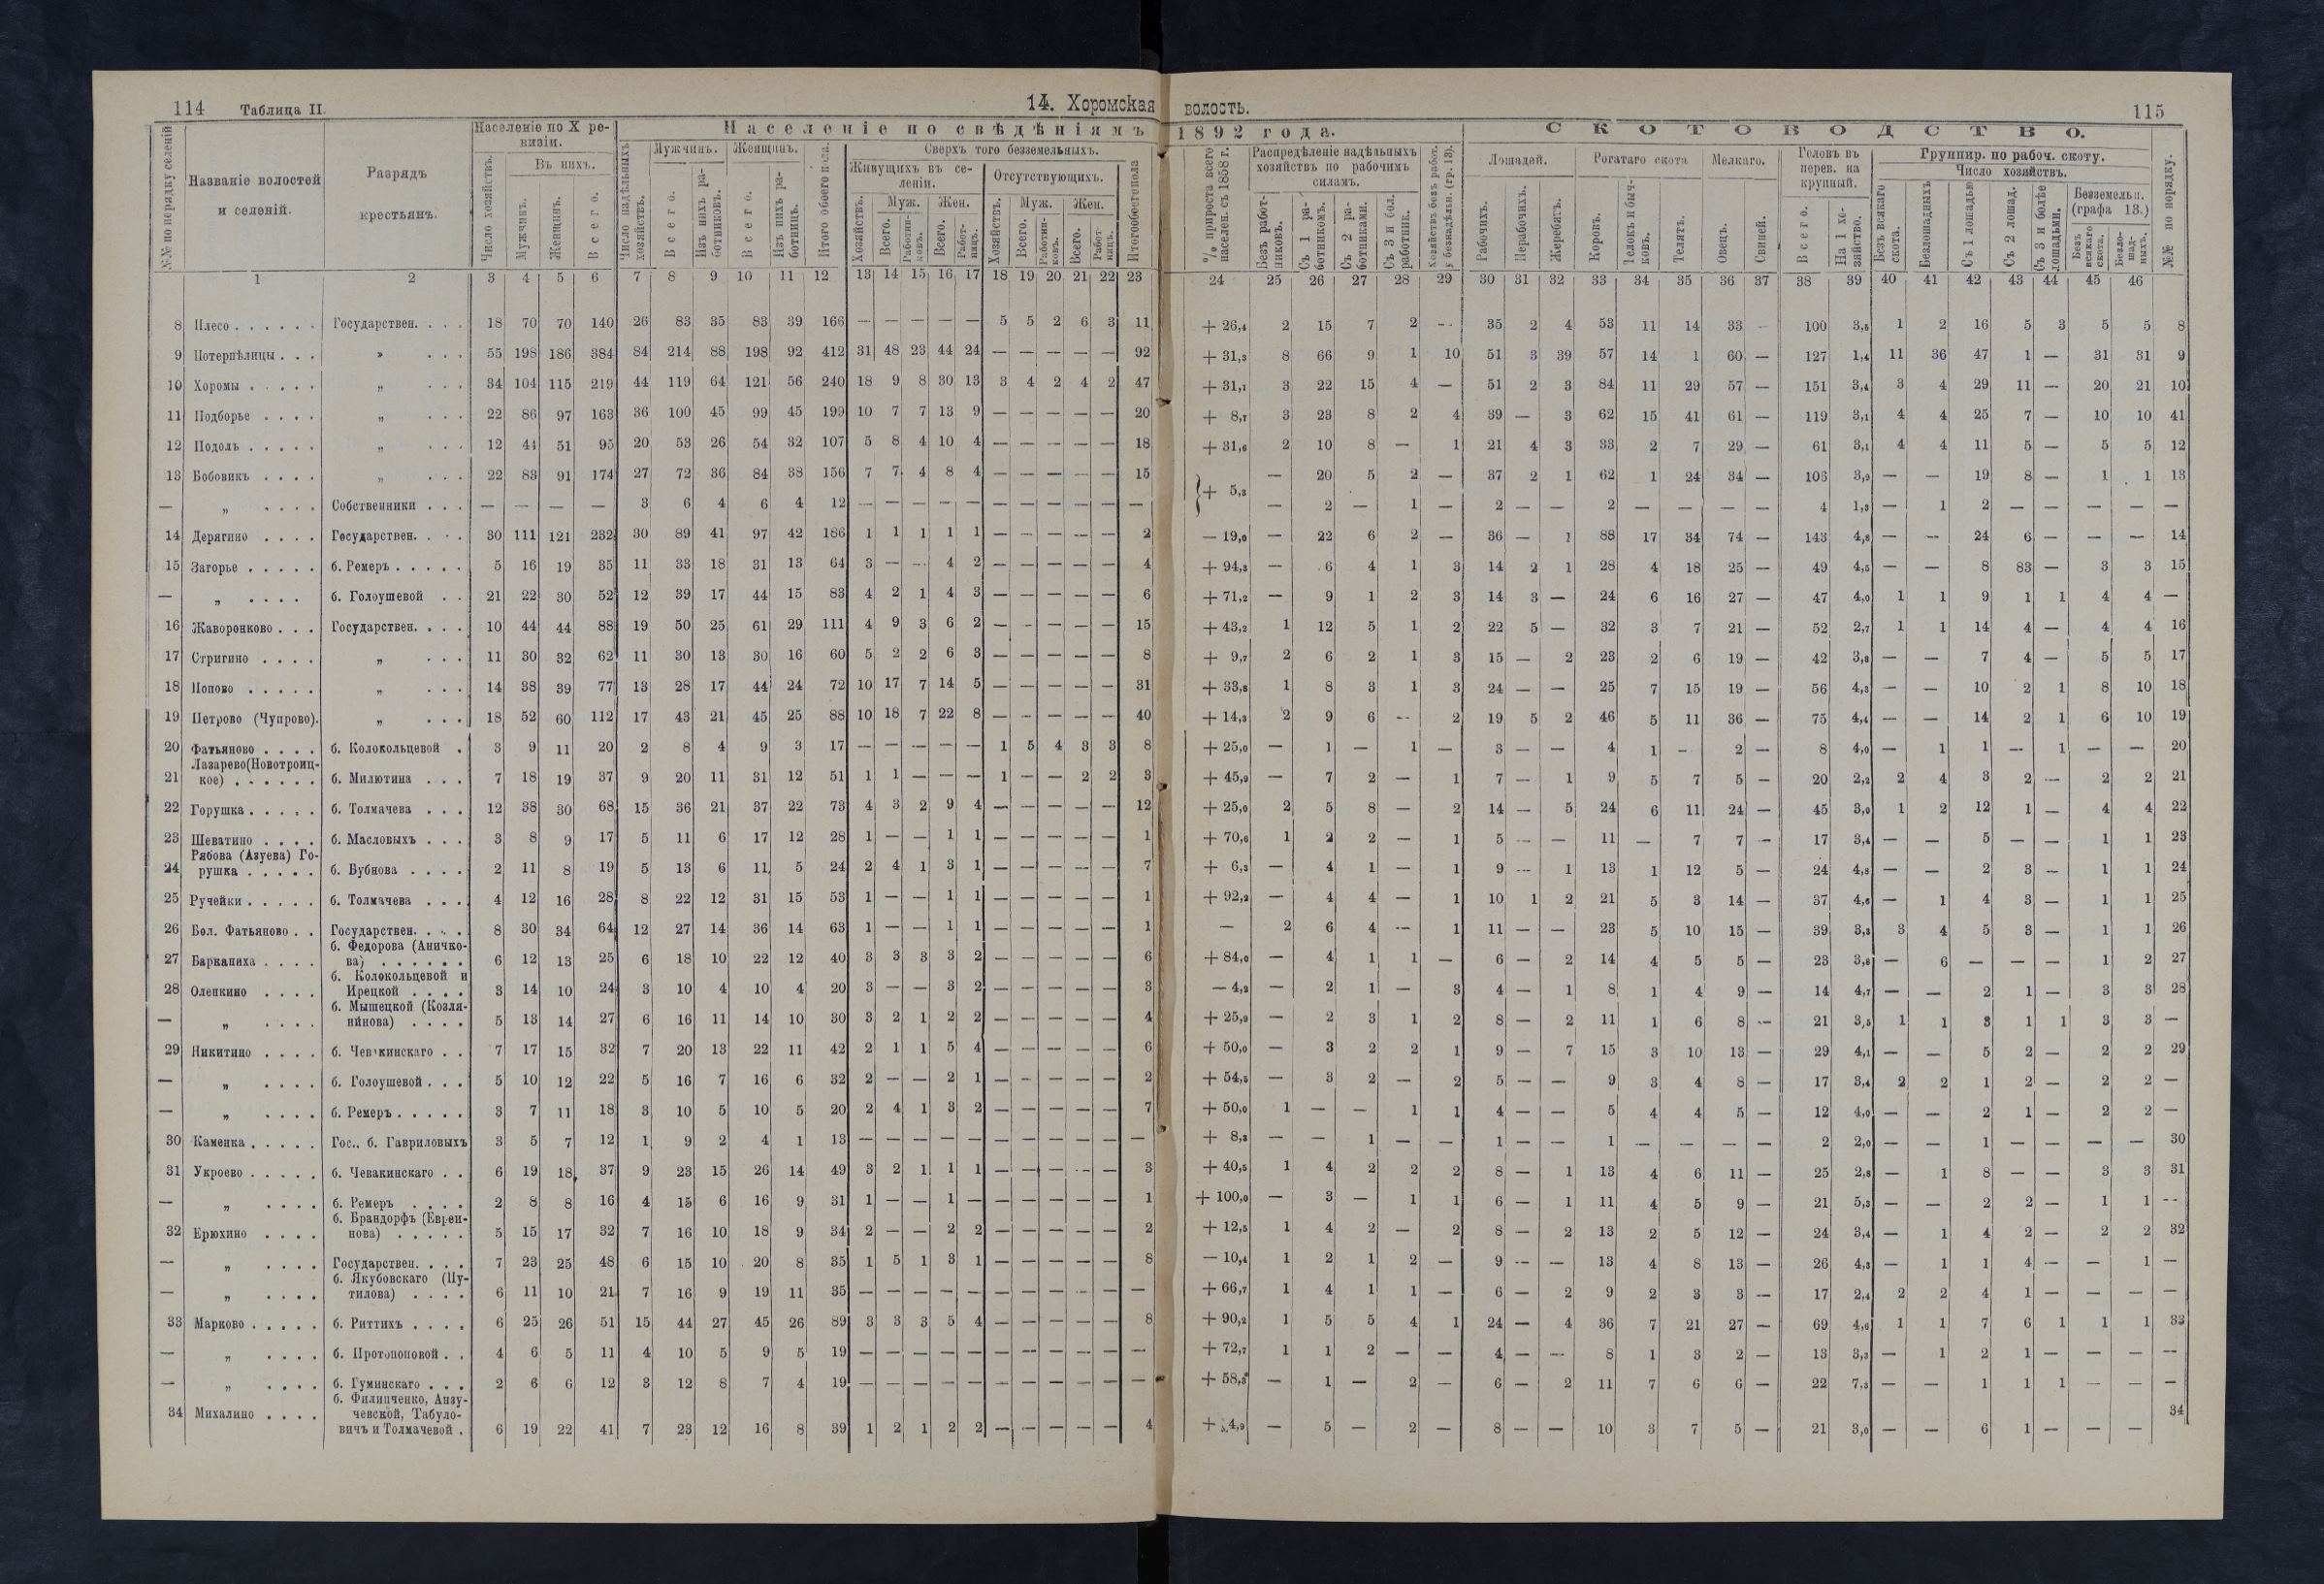 114 Таблица II.
14. Хоромская волость.
115
№№ по порядку селеній
Названіе волостей и селеній.
Разрядъ крестьянъ.
Населеніе по X ревизіи.
Число хозяйствъ.
Въ нихъ.
Мужчинъ.
Женщинъ.
Всего.
Населеніе по свѣдѣніямъ 1892 года.
Число надѣльныхъ хозяйствъ.
Мужчинъ.
Всего.
Изъ нихъ работниковъ.
Женщинъ.
Всего.
Изъ нихъ работницъ.
Итого обоего пола.
Сверхъ того безземельныхъ.
Живущихъ въ селеніи.
Хозяйствъ.
Муж.
Всего.
Работниковъ.
Жен.
Всего.
Работницъ.
Отсутствующихъ.
Хозяйствъ.
Муж.
Всего.
Работниковъ.
Жен.
Всего.
Работницъ.
Итого обоего пола
% прироста всего населен. съ 1858 г.
Распредѣленіе надѣльныхъ хозяйствъ по рабочимъ силамъ.
Безъ работниковъ.
Съ 1 работникомъ.
Съ 2 работниками.
Съ 3 и бол. работник.
Хозяйствъ безъ работ. у безнадѣльн. (гр. 13).
СКОТОВОДСТВО.
Лошадей.
Рабочихъ.
Нерабочихъ.
Жеребятъ.
Рогатаго скота
Коровъ.
Телокъ и бычковъ.
Телятъ.
Мелкаго.
Овецъ.
Свиней.
Головъ въ перев. на крупный.
Всего.
На 1 хозяйство.
Группир. по рабоч. скоту.
Число хозяйствъ.
Безъ всякаго скота.
Безлошадныхъ
Съ 1 лошадью
Съ 2 лошад.
Съ 3 и болѣе лошадьми.
Безземельн. (графа 13.)
Безъ всякаго скота.
Безлошадныхъ.
№№ по порядку.
1 2 3 4 5 6 7 8 9 10 11 12 13 14 15 16 17 18 19 20 21 22 23 24 25 26 27 28 29 30 31 32 33 34 35 36 37 38 39 40 41 42 43 44 45 46
8 Плесо . . . . . . Государствен. . . . 18 70 70 140 26 83 35 83 39 166 — — — — — 5 5 2 6 3 11 + 26,4 2 15 7 2 — 35 2 4 53 11 14 33 — 100 3,8 1 2 16 5 3 5 5 8
9 Потерпѣлицы . . . » . . . 55 198 186 384 84 214 88 198 92 412 31 48 23 44 24 — — — — — 92 + 31,3 8 66 9 1 10 51 3 39 57 14 1 60 — 127 1,4 11 36 47 1 — 31 31 9
10 Хоромы . . . . . „ . . . 34 104 115 219 44 119 64 121 56 240 18 9 8 30 13 3 4 2 4 2 47 + 31,1 3 22 15 4 — 51 2 3 84 11 29 57 — 151 3,4 3 4 29 11 — 20 21 10
11 Подборье . . . . „ . . . 22 86 97 163 36 100 45 99 45 199 10 7 7 13 9 — — — — — 20 + 8,7 3 23 8 2 4 39 — 3 62 15 41 61 — 119 3,1 4 4 25 7 — 10 10 41
12 Подолъ . . . . . „ . . . 12 44 51 95 20 53 26 54 32 107 5 8 4 10 4 — — — — — 18 + 31,6 2 10 8 — 1 21 4 3 33 2 7 29 — 61 3,1 4 4 11 5 — 5 5 12
13 Бобовикъ . . . . „ . . . 22 83 91 174 27 72 36 84 38 156 7 7 4 8 4 — — — — — 15 } + 5,3 — 20 5 2 — 37 2 1 62 1 24 34 — 106 3,9 — — 19 8 — 1 1 13
— „ . . . . Собственники . . . — — — — 3 6 4 6 4 12 — — — — — — — — — — — — 2 — 1 — 2 — — 2 — — — — 4 1,3 — 1 2 — — — — —
14 Дерягино . . . . Государствен. . . . 30 111 121 232 30 89 41 97 42 186 1 1 1 1 1 — — — — — 2 — 19,0 — 22 6 2 — 36 — 1 88 17 34 74 — 143 4,8 — — 24 6 — — — 14
15 Загорье . . . . . б. Ремеръ . . . . . 5 16 19 35 11 33 18 31 13 64 3 — — 4 2 — — — — — 4 + 94,3 — 6 4 1 3 14 2 1 28 4 18 25 — 49 4,5 — — 8 83 — 3 3 15
— „ . . . . б. Голоушевой . . 21 22 30 52 12 39 17 44 15 83 4 2 1 4 3 — — — — — 6 + 71,2 — 9 1 2 3 14 3 — 24 6 16 27 — 47 4,0 1 1 9 1 1 4 4 —
16 Жаворонково . . . Государствен. . . . 10 44 44 88 19 50 25 61 29 111 4 9 3 6 2 — — — — — 15 + 43,2 1 12 5 1 2 22 5 — 32 3 7 21 — 52 2,7 1 1 14 4 — 4 4 16
17 Стригино . . . . „ . . . 11 30 32 62 11 30 13 30 16 60 5 2 2 6 3 — — — — — 8 + 9,7 2 6 2 1 3 15 — 2 23 2 6 19 — 42 3,8 — — 7 4 — 5 5 17
18 Попово . . . . . „ . . . 14 38 39 77 13 28 17 44 24 72 10 17 7 14 5 — — — — — 31 + 33,8 1 8 3 1 3 24 — — 25 7 15 19 — 56 4,3 — — 10 2 1 8 10 18
19 Петрово (Чупрово). „ . . . 18 52 60 112 17 43 21 45 25 88 10 18 7 22 8 — — — — — 40 + 14,3 2 9 6 — 2 19 5 2 46 5 11 36 — 75 4,4 — — 14 2 1 6 10 19
20 Фатьяново . . . . б. Колокольцевой . 3 9 11 20 2 8 4 9 3 17 — — — — — 1 5 4 3 3 8 + 25,0 — 1 — 1 — 3 — — 4 1 — 2 — 8 4,0 — 1 1 — 1 — — 20
Лазарево(Новотроиц-
21 кое) . . . . . . б. Милютина . . . 7 18 19 37 9 20 11 31 12 51 1 1 — — — 1 — — 2 2 3 + 45,9 — 7 2 — 1 7 — 1 9 5 7 5 — 20 2,2 2 4 3 2 — 2 2 21
22 Горушка . . . . . б. Толмачева . . . 12 38 30 68 15 36 21 37 22 73 4 3 2 9 4 — — — — — 12 + 25,0 2 5 8 — 2 14 — 5 24 6 11 24 — 45 3,0 1 2 12 1 — 4 4 22
23 Шеватино . . . . б. Масловыхъ . . . 3 8 9 17 5 11 6 17 12 28 1 — — 1 1 — — — — — 1 + 70,6 1 2 2 — 1 5 — — 11 — 7 7 — 17 3,4 — — 5 — — 1 1 23
Рябова (Азуева) Го-
24 рушка . . . . . б. Бубнова . . . . 2 11 8 19 5 13 6 11 5 24 2 4 1 3 1 — — — — — 7 + 6,3 — 4 1 — 1 9 — 1 13 1 12 5 — 24 4,8 — — 2 3 — 1 1 24
25 Ручейки . . . . . б. Толмачева . . . 4 12 16 28 8 22 12 31 15 53 1 — — 1 1 — — — — — 1 + 92,2 — 4 4 — 1 10 1 2 21 5 3 14 — 37 4,6 — 1 4 3 — 1 1 25
26 Бол. Фатьяново . . Государствен. . . . 8 30 34 64 12 27 14 36 14 63 1 — — 1 1 — — — — — 1 — 2 6 4 — 1 11 — — 23 5 10 15 — 39 3,3 3 4 5 3 — 1 1 26
б. Федорова (Аничко-
27 Барканиха . . . . ва) . . . . . . 6 12 13 25 6 18 10 22 12 40 3 3 3 3 2 — — — — — 6 + 84,0 — 4 1 1 — 6 — 2 14 4 5 5 — 23 3,8 — 6 — — — 1 2 27
б. Колокольцевой и
28 Оленкино . . . . Ирецкой . . . . 3 14 10 24 3 10 4 10 4 20 3 — — 3 2 — — — — — 3 — 4,2 — 2 1 — 3 4 — 1 8 1 4 9 — 14 4,7 — — 2 1 — 3 3 28
б. Мышецкой (Козля-
— „ . . . . нинова) . . . . 5 13 14 27 6 16 11 14 10 30 3 2 1 2 2 — — — — — 4 + 25,9 — 2 3 1 2 8 — 2 11 1 6 8 — 21 3,5 1 1 3 1 1 3 3 —
29 Никитино . . . . б. Чевакинскаго . . 7 17 15 32 7 20 13 22 11 42 2 1 1 5 4 — — — — — 6 + 50,0 — 3 2 2 1 9 — 7 15 3 10 13 — 29 4,1 — — 5 2 — 2 2 29
— „ . . . . б. Голоушевой . . . 5 10 12 22 5 16 7 16 6 32 2 — — 2 1 — — — — — 2 + 54,5 — 3 2 — 2 5 — — 9 3 4 8 — 17 3,4 2 2 1 2 — 2 2 —
— „ . . . . б. Ремеръ . . . . . 3 7 11 18 3 10 5 10 5 20 2 4 1 3 2 — — — — — 7 + 50,0 1 — — 1 1 4 — — 5 4 4 5 — 12 4,0 — — 2 1 — 2 2 —
30 Каменка . . . . . Гос.. б. Гавриловыхъ 3 5 7 12 1 9 2 4 1 13 — — — — — — — — — — — + 8,3 — — 1 — — 1 — — 1 — — — — 2 2,0 — — 1 — — — — 30
31 Укроево . . . . . б. Чевакинскаго . . 6 19 18 37 9 23 15 26 14 49 3 2 1 1 1 — — — — — 3 + 40,5 1 4 2 2 2 8 — 1 13 4 6 11 — 25 2,8 — 1 8 — — 3 3 31
— „ . . . . б. Ремеръ . . . . 2 8 8 16 4 15 6 16 9 31 1 — — 1 — — — — — — 1 + 100,0 — 3 — 1 1 6 — 1 11 4 5 9 — 21 5,3 — — 2 2 — 1 1 —
б. Брандорфъ (Евреи-
32 Ерюхино . . . . нова) . . . . . 5 15 17 32 7 16 10 18 9 34 2 — — 2 2 — — — — — 2 + 12,5 1 4 2 — 2 8 — 2 13 2 5 12 — 24 3,4 — 1 4 2 — 2 2 32
— „ . . . . Государствен. . . . 7 23 25 48 6 15 10 20 8 35 1 5 1 3 1 — — — — — 8 — 10,4 1 2 1 2 — 9 — — 13 4 8 13 — 26 4,3 — 1 1 4 — — 1 —
б. Якубовскаго (Пу-
— „ . . . . тилова) . . . . 6 11 10 21 7 16 9 19 11 35 — — — — — — — — — — — + 66,7 1 4 1 1 — 6 — 2 9 2 3 3 — 17 2,4 2 2 4 1 — — — —
33 Марково . . . . . б. Риттихъ . . . . 6 25 26 51 15 44 27 45 26 89 3 3 3 5 4 — — — — — 8 + 90,2 1 5 5 4 1 24 — 4 36 7 21 27 — 69 4,6 1 1 7 6 1 1 1 33
— „ . . . . б. Протопоповой . . 4 6 5 11 4 10 5 9 5 19 — — — — — — — — — — — + 72,7 1 1 2 — — 4 — — 8 1 3 2 — 13 3,3 — 1 2 1 — — — —
— „ . . . . б. Гуминскаго . . . 2 6 6 12 3 12 8 7 4 19 — — — — — — — — — — — + 58,3 — 1 — 2 — 6 — 2 11 7 6 6 — 22 7,3 — — 1 1 1 — — —
б. Филипченко, Анзу-
34 Михалино . . . . чевской, Табуло- 34
вичъ и Толмачевой . 6 19 22 41 7 23 12 16 8 39 1 2 1 2 2 — — — — — 4 + 4,9 — 5 — 2 — 8 — — 10 3 7 5 — 21 3,0 — — 6 1 — — —